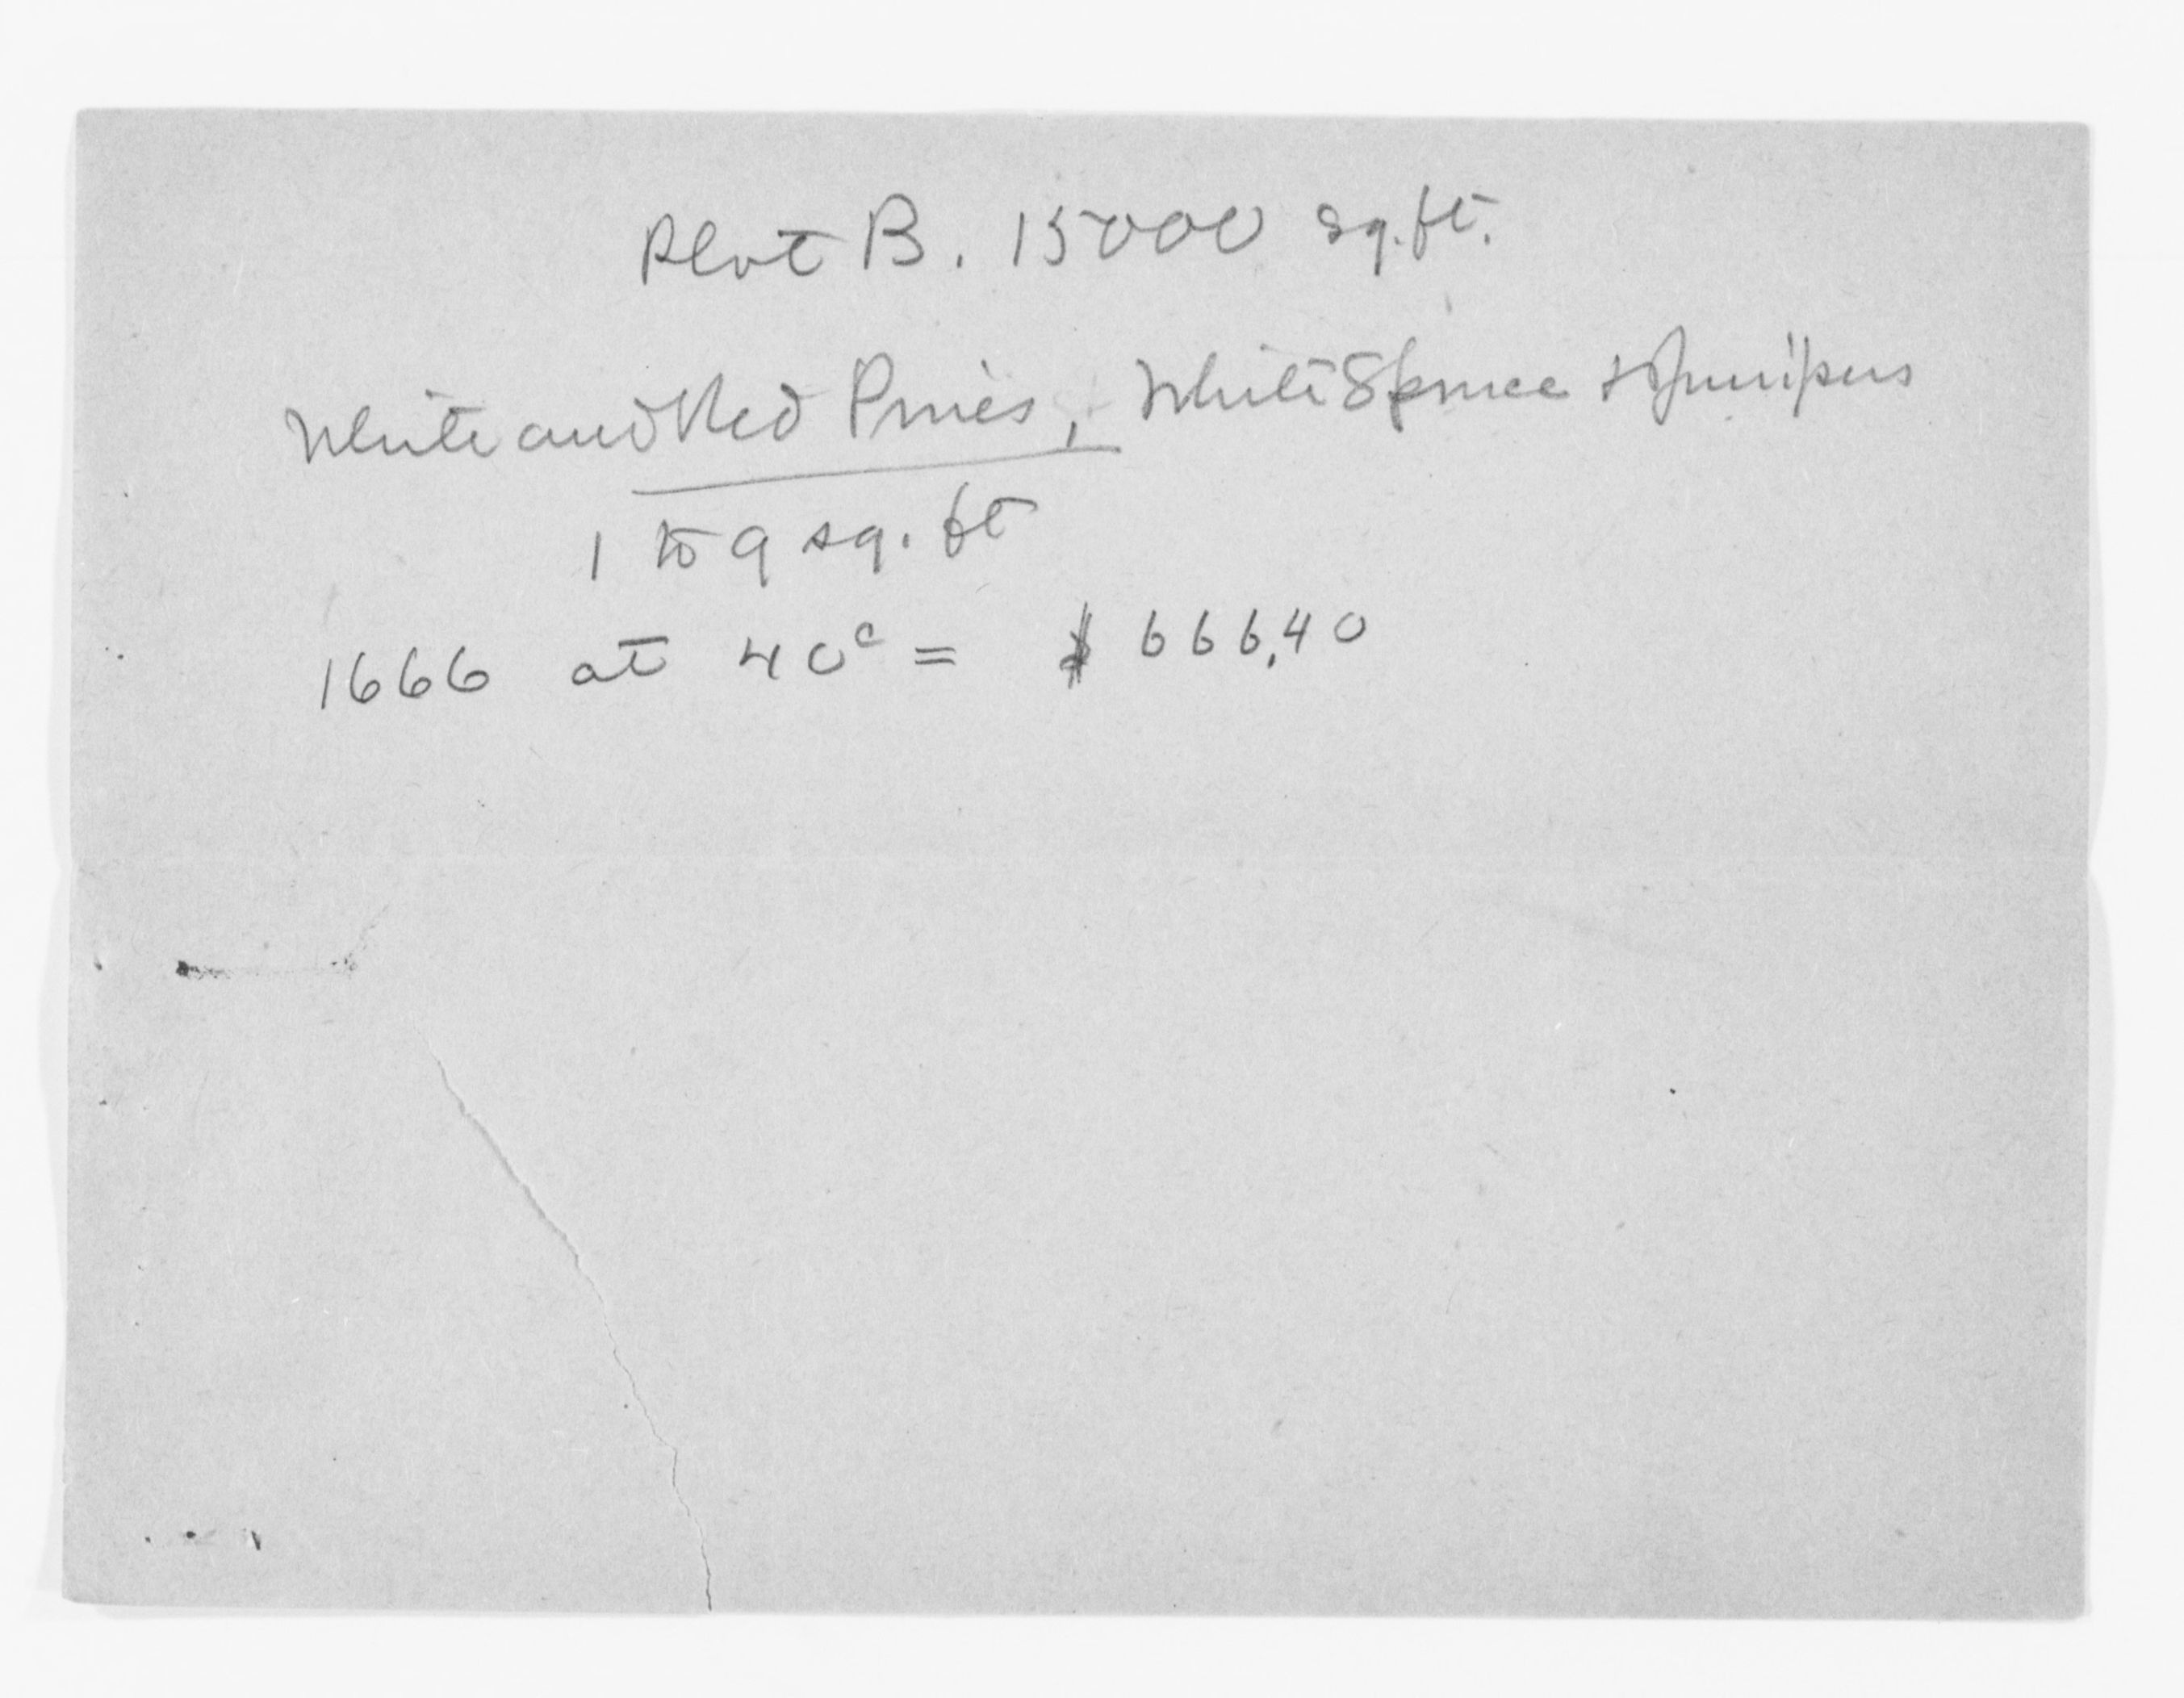 Plot B. 15000 sq. ft.
White and Red Pines, White Spruce + Junipers
1 to 9 sq. ft
1666 at 40c = $ 666.40